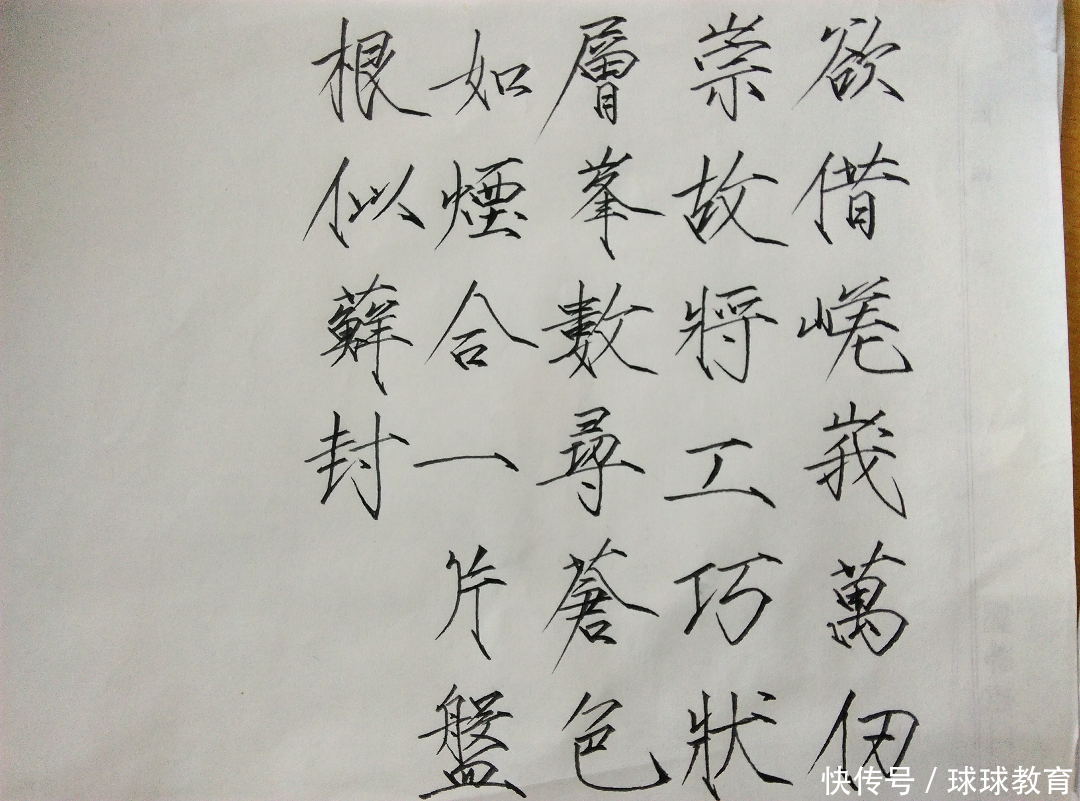 欲借嵯峩萬仞
崇故將工巧狀
層峯數尋蒼色
如煙合一片盤
根似蘚封
快传号 / 球球教育